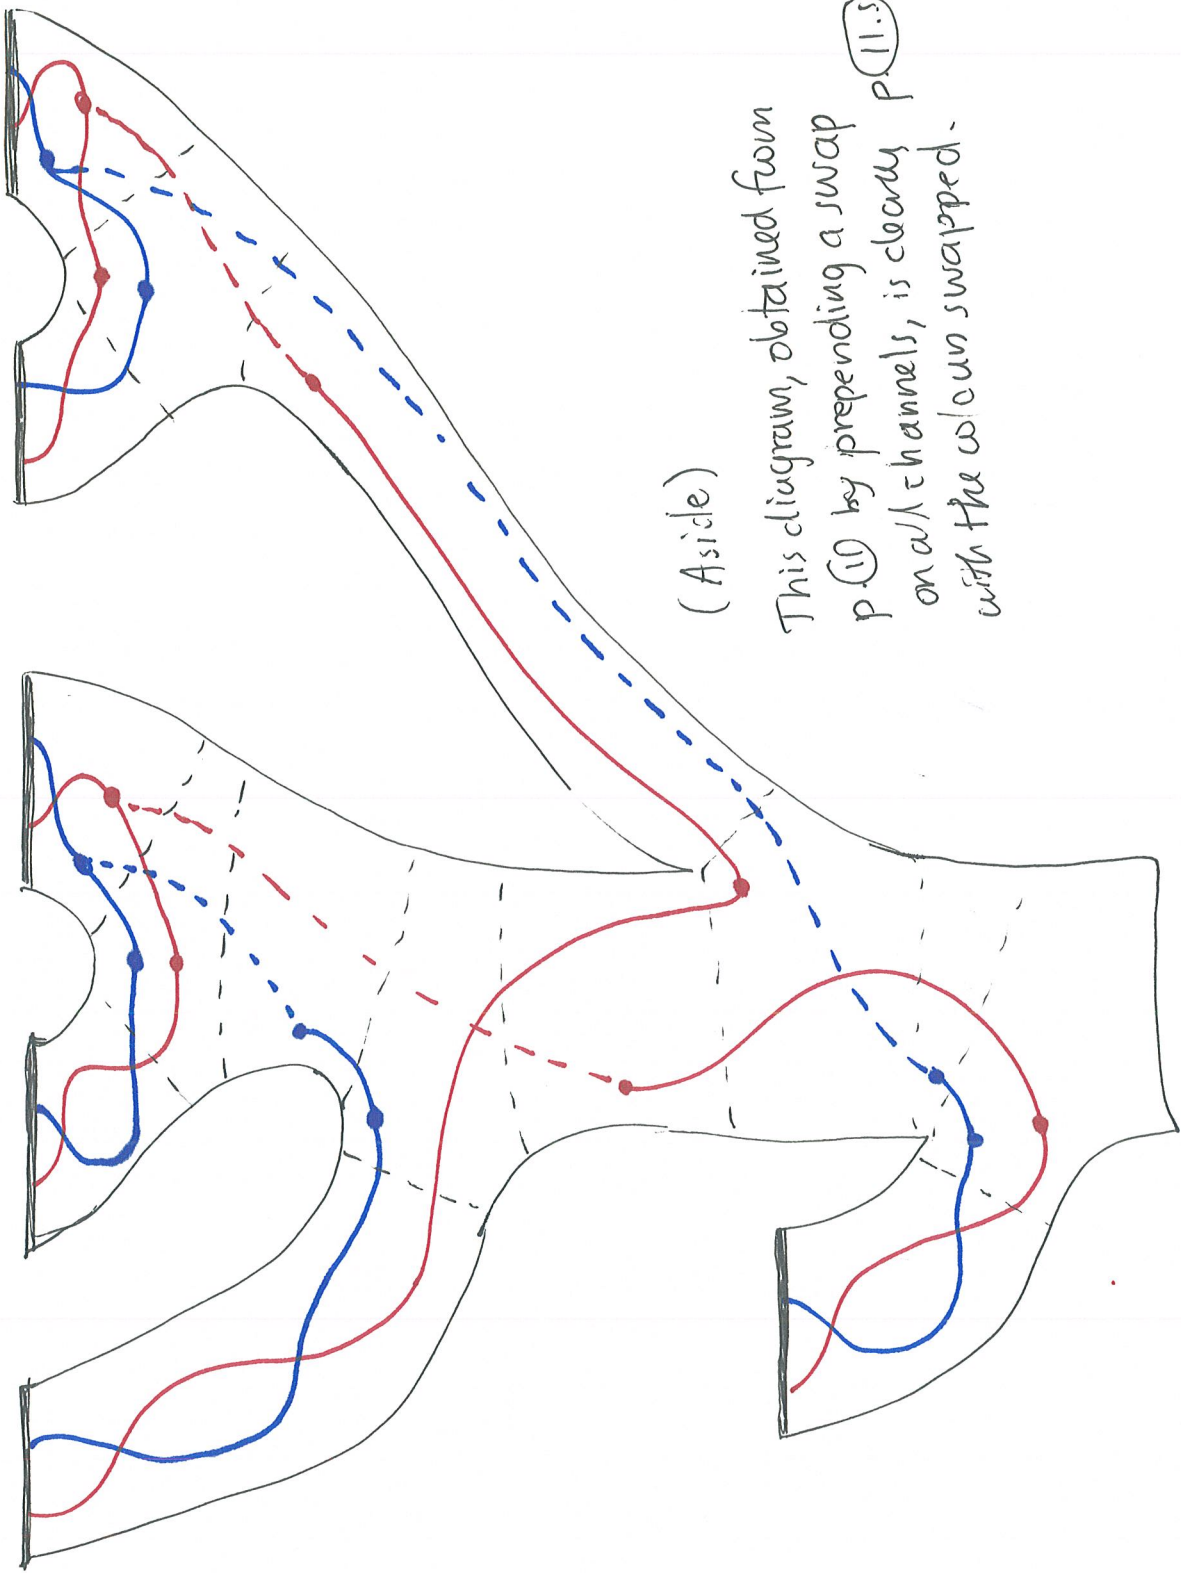 p. 11.5
(Aside)
This diagram, obtained from
p. 11 by prepending a swap
on all channels, is clearly
with the colours swapped.